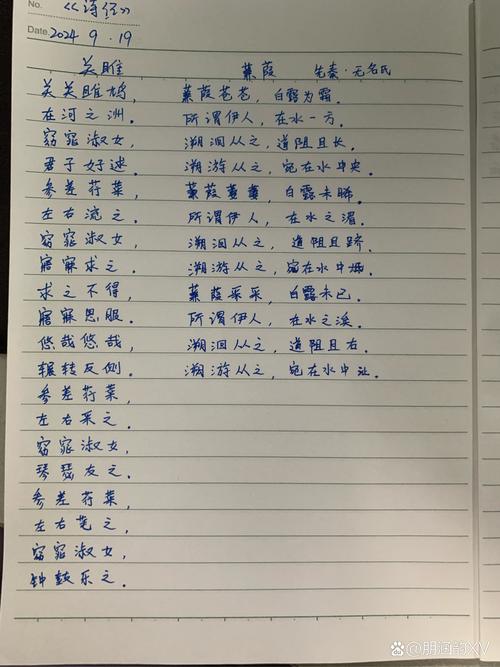 No. 《诗经》
Date. 2024 9.19
关雎
关关雎鸠,
在河之洲.
窈窕淑女,
君子好逑.
参差荇菜,
左右流之.
窈窕淑女,
寤寐求之.
求之不得,
寤寐思服.
悠哉悠哉,
辗转反侧.
参差荇菜,
左右采之.
窈窕淑女,
琴瑟友之.
参差荇菜,
左右芼之,
窈窕淑女,
钟鼓乐之.
蒹葭 先秦·无名氏
蒹葭苍苍, 白露为霜.
所谓伊人, 在水一方.
溯洄从之, 道阻且长.
溯游从之, 宛在水中央.
蒹葭萋萋, 白露未晞.
所谓伊人, 在水之湄.
溯洄从之, 道阻且跻.
溯游从之, 宛在水中坻.
蒹葭采采, 白露未已.
所谓伊人, 在水之涘.
溯洄从之, 道阻且右.
溯游从之, 宛在水中沚.
Baidu百科 @朋涵的XV